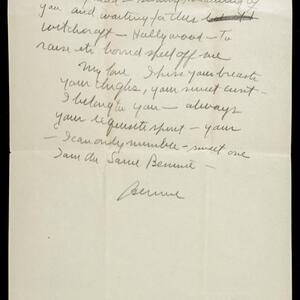 you and waiting for this
witchcraft — Hollywood — to
raise its horrid spell off me
My love I kiss your breasts
your thighs, your sweet cunt —
I belong to you — always
your — your
— I can only mumble — sweet one
I am the Same Bennie —
Bennie